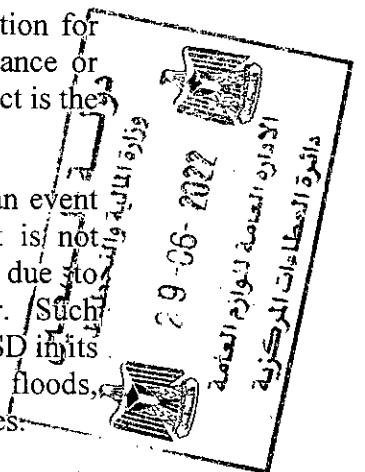 tion for
ance or
ct is the
an event
t is not
due to
r. Such
SD in its
floods,
es.
دولة فلسطين
وزارة المالية والتخطيط
29-06-2022
الادارة العامة للوازم العامة
دائرة العطاءات المركزية